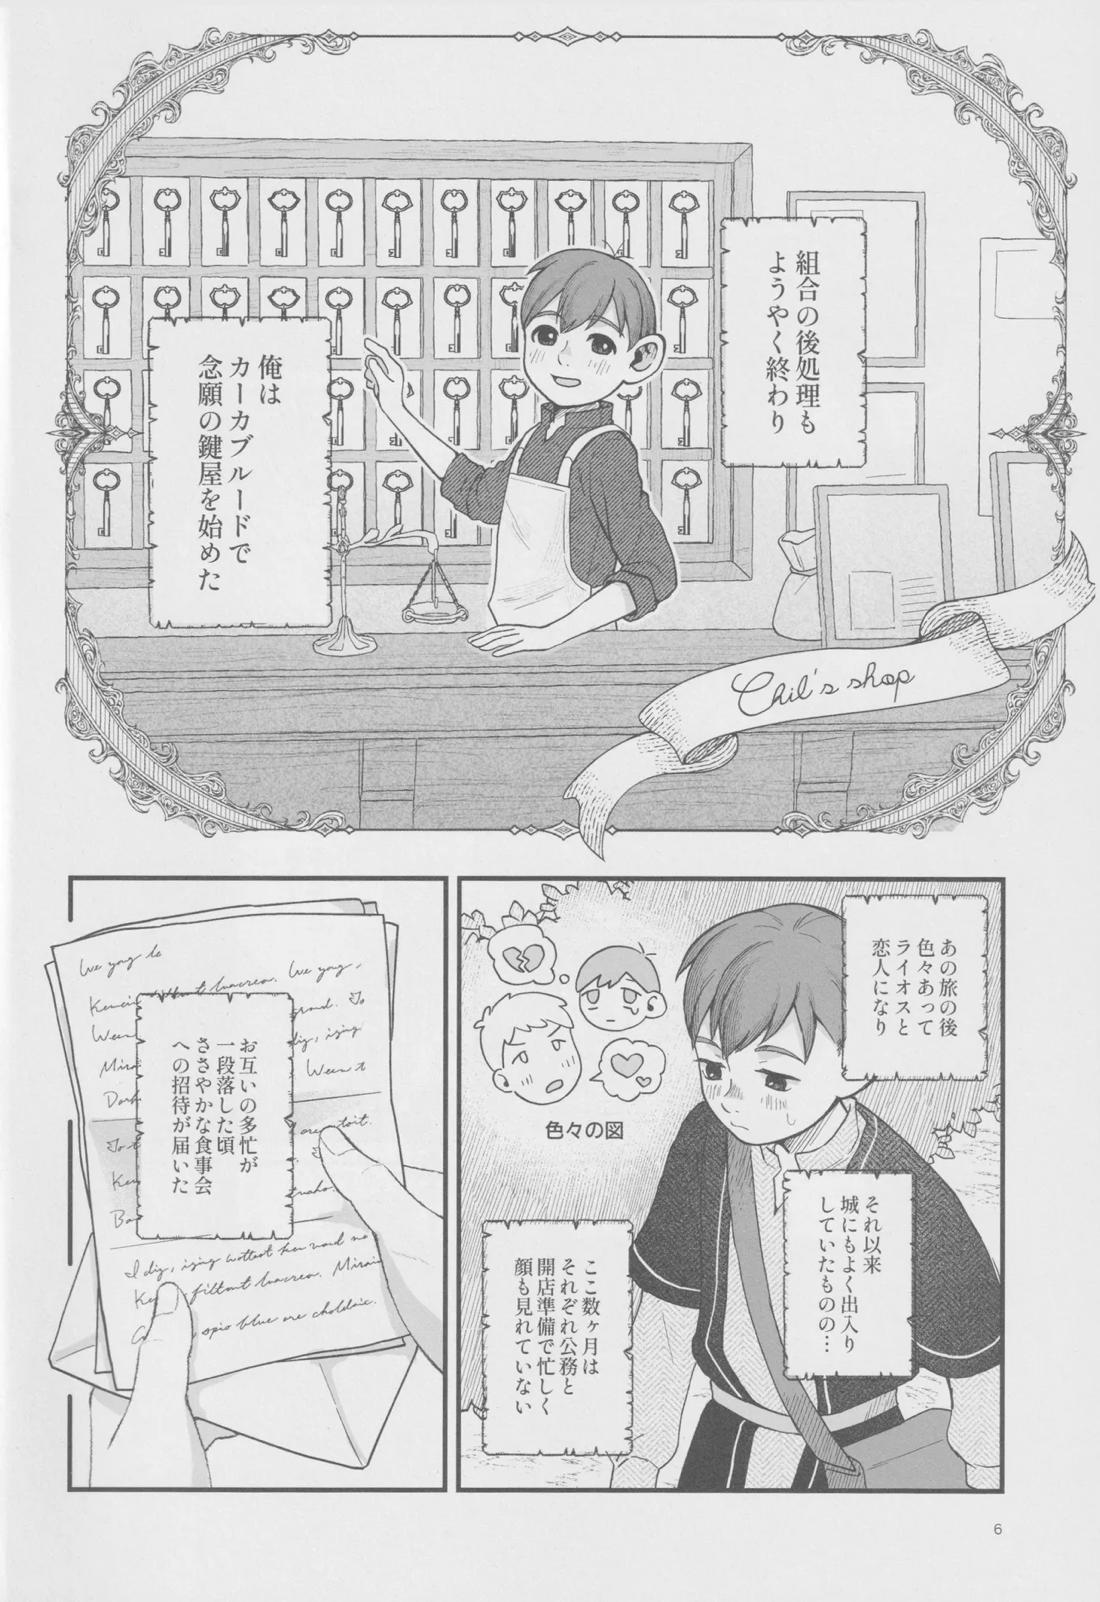 組合の後処理も
ようやく終わり
俺は
カーカブルードで
念願の鍵屋を始めた
Chil's shop
あの旅の後
色々あって
ライオスと
恋人になり
色々の図
それ以来
城にもよく出入り
していたものの…
ここ数ヶ月は
それぞれ公務と
開店準備で忙しく
顔も見れていない
お互いの多忙が
一段落した頃
ささやかな食事会
への招待が届いた
6